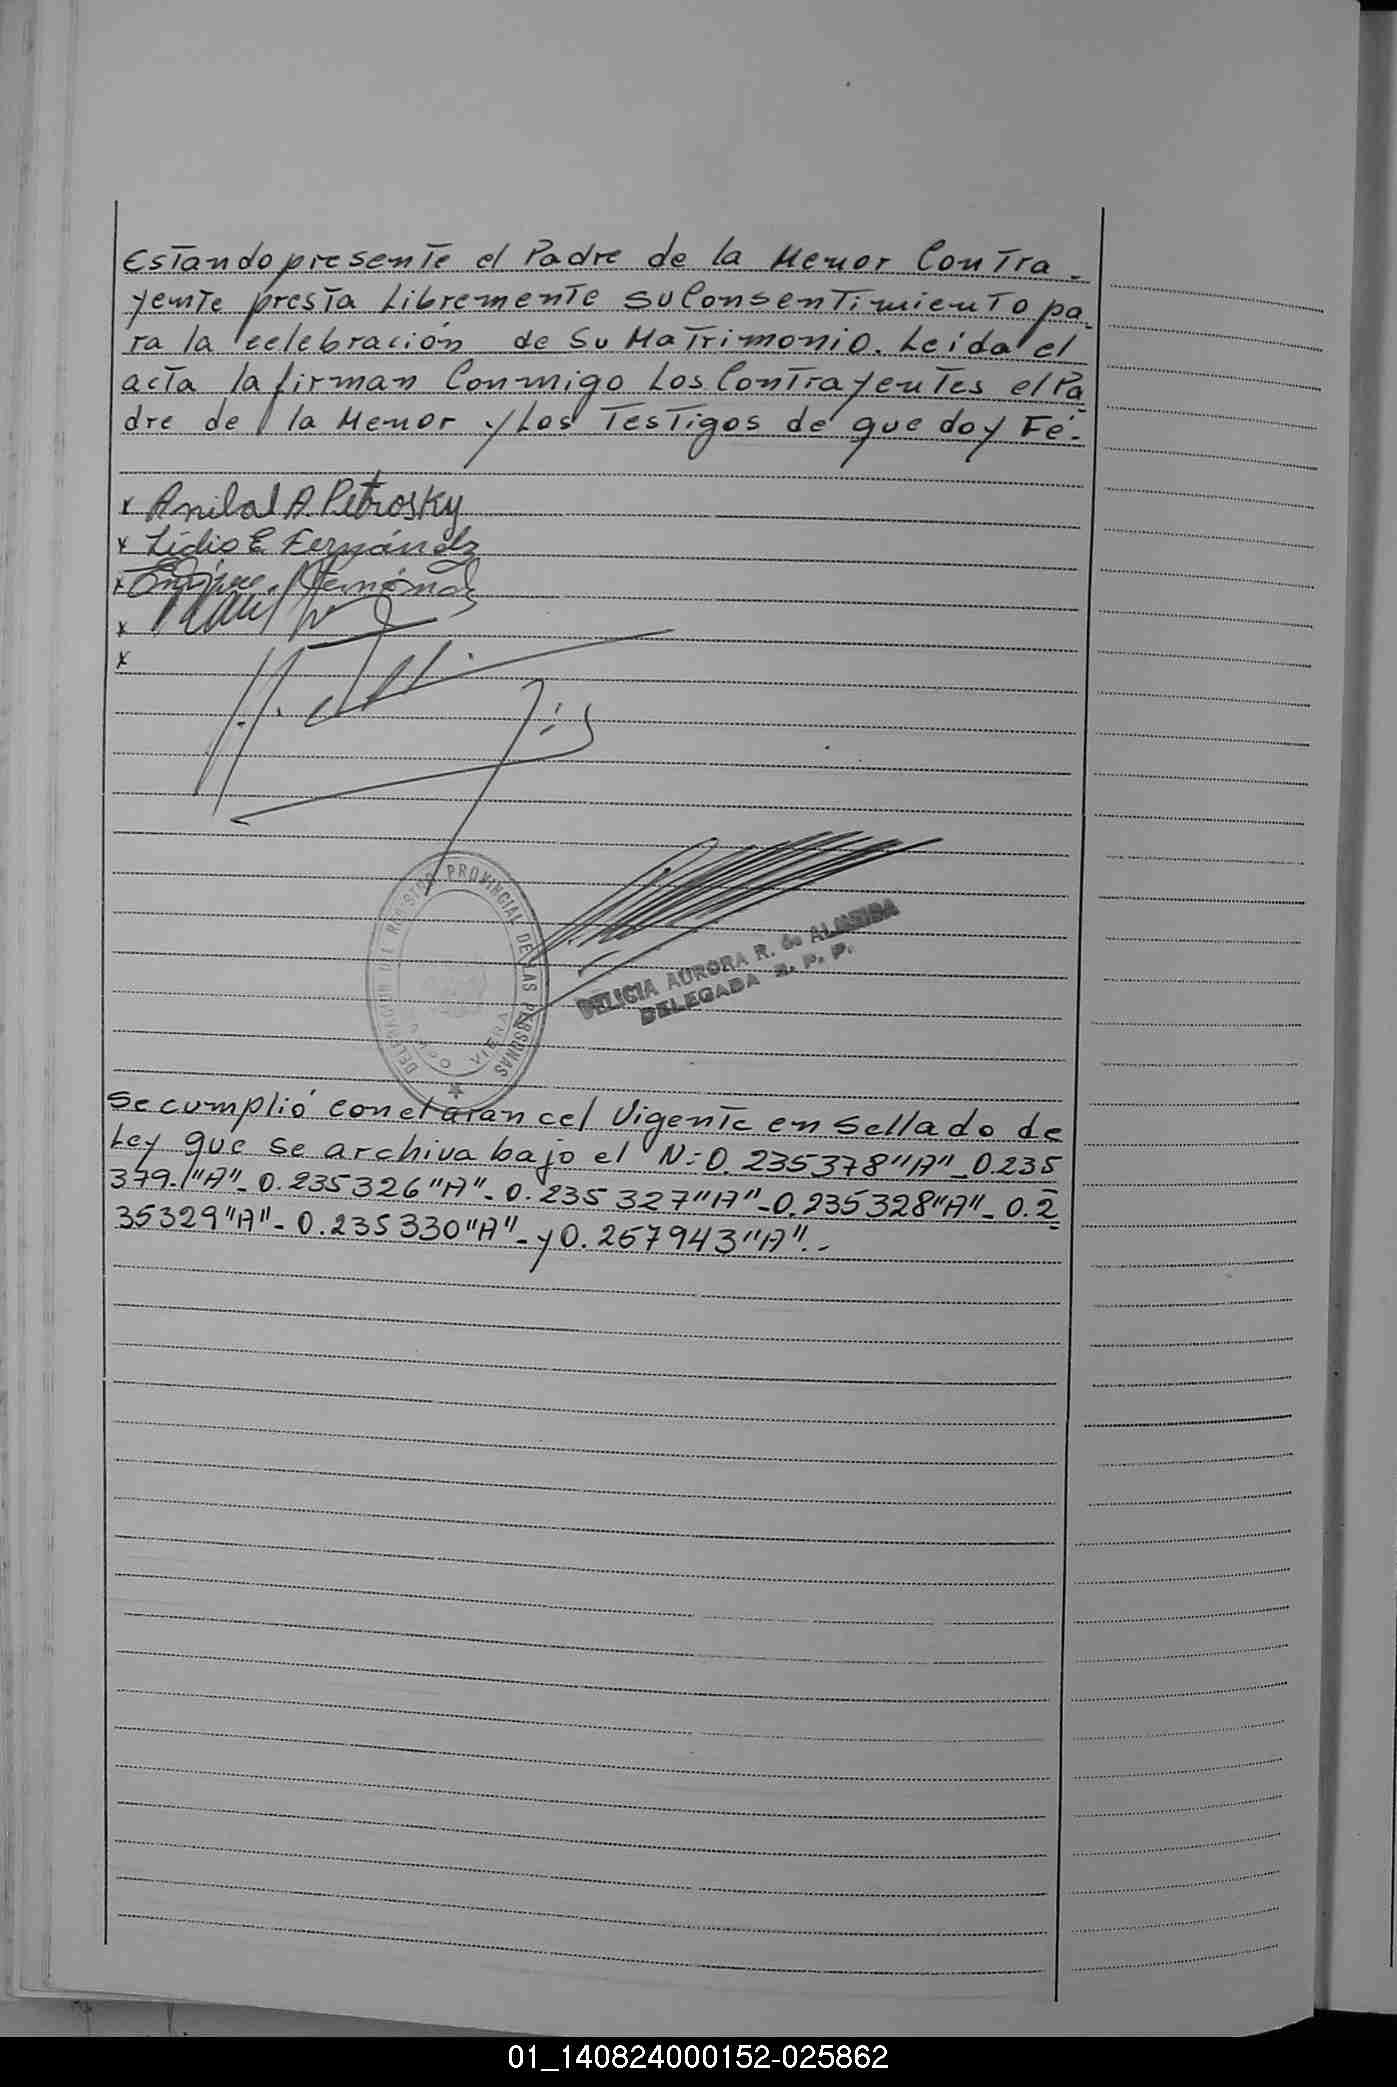 Estando presente el Padre de la Menor Contra-
yente presta Libremente su Consentimiento pa-
ra la celebración de Su Matrimonio. Leida el
acta la firman Conmigo Los Contrayentes el Pa-
dre de la Menor y Los Testigos de que doy Fé.-
x Anibal A. Petrosky
x Lidio E. Fernández
x
x
x
REGISTRO PROVINCIAL DE LAS PERSONAS
VIERA
DELICIA AURORA R. de ALMEIDA
DELEGADA R. P. P.
Se cumplió con el arancel Vigente en Sellado de
Ley que se archiva bajo el N: 0.235378"A"-0.235
379-"A"-0.235326"A"-0.235327"A"-0.235328"A"-0.2
35329"A"-0.235330"A"-y 0.267943"A".-
01_140824000152-025862